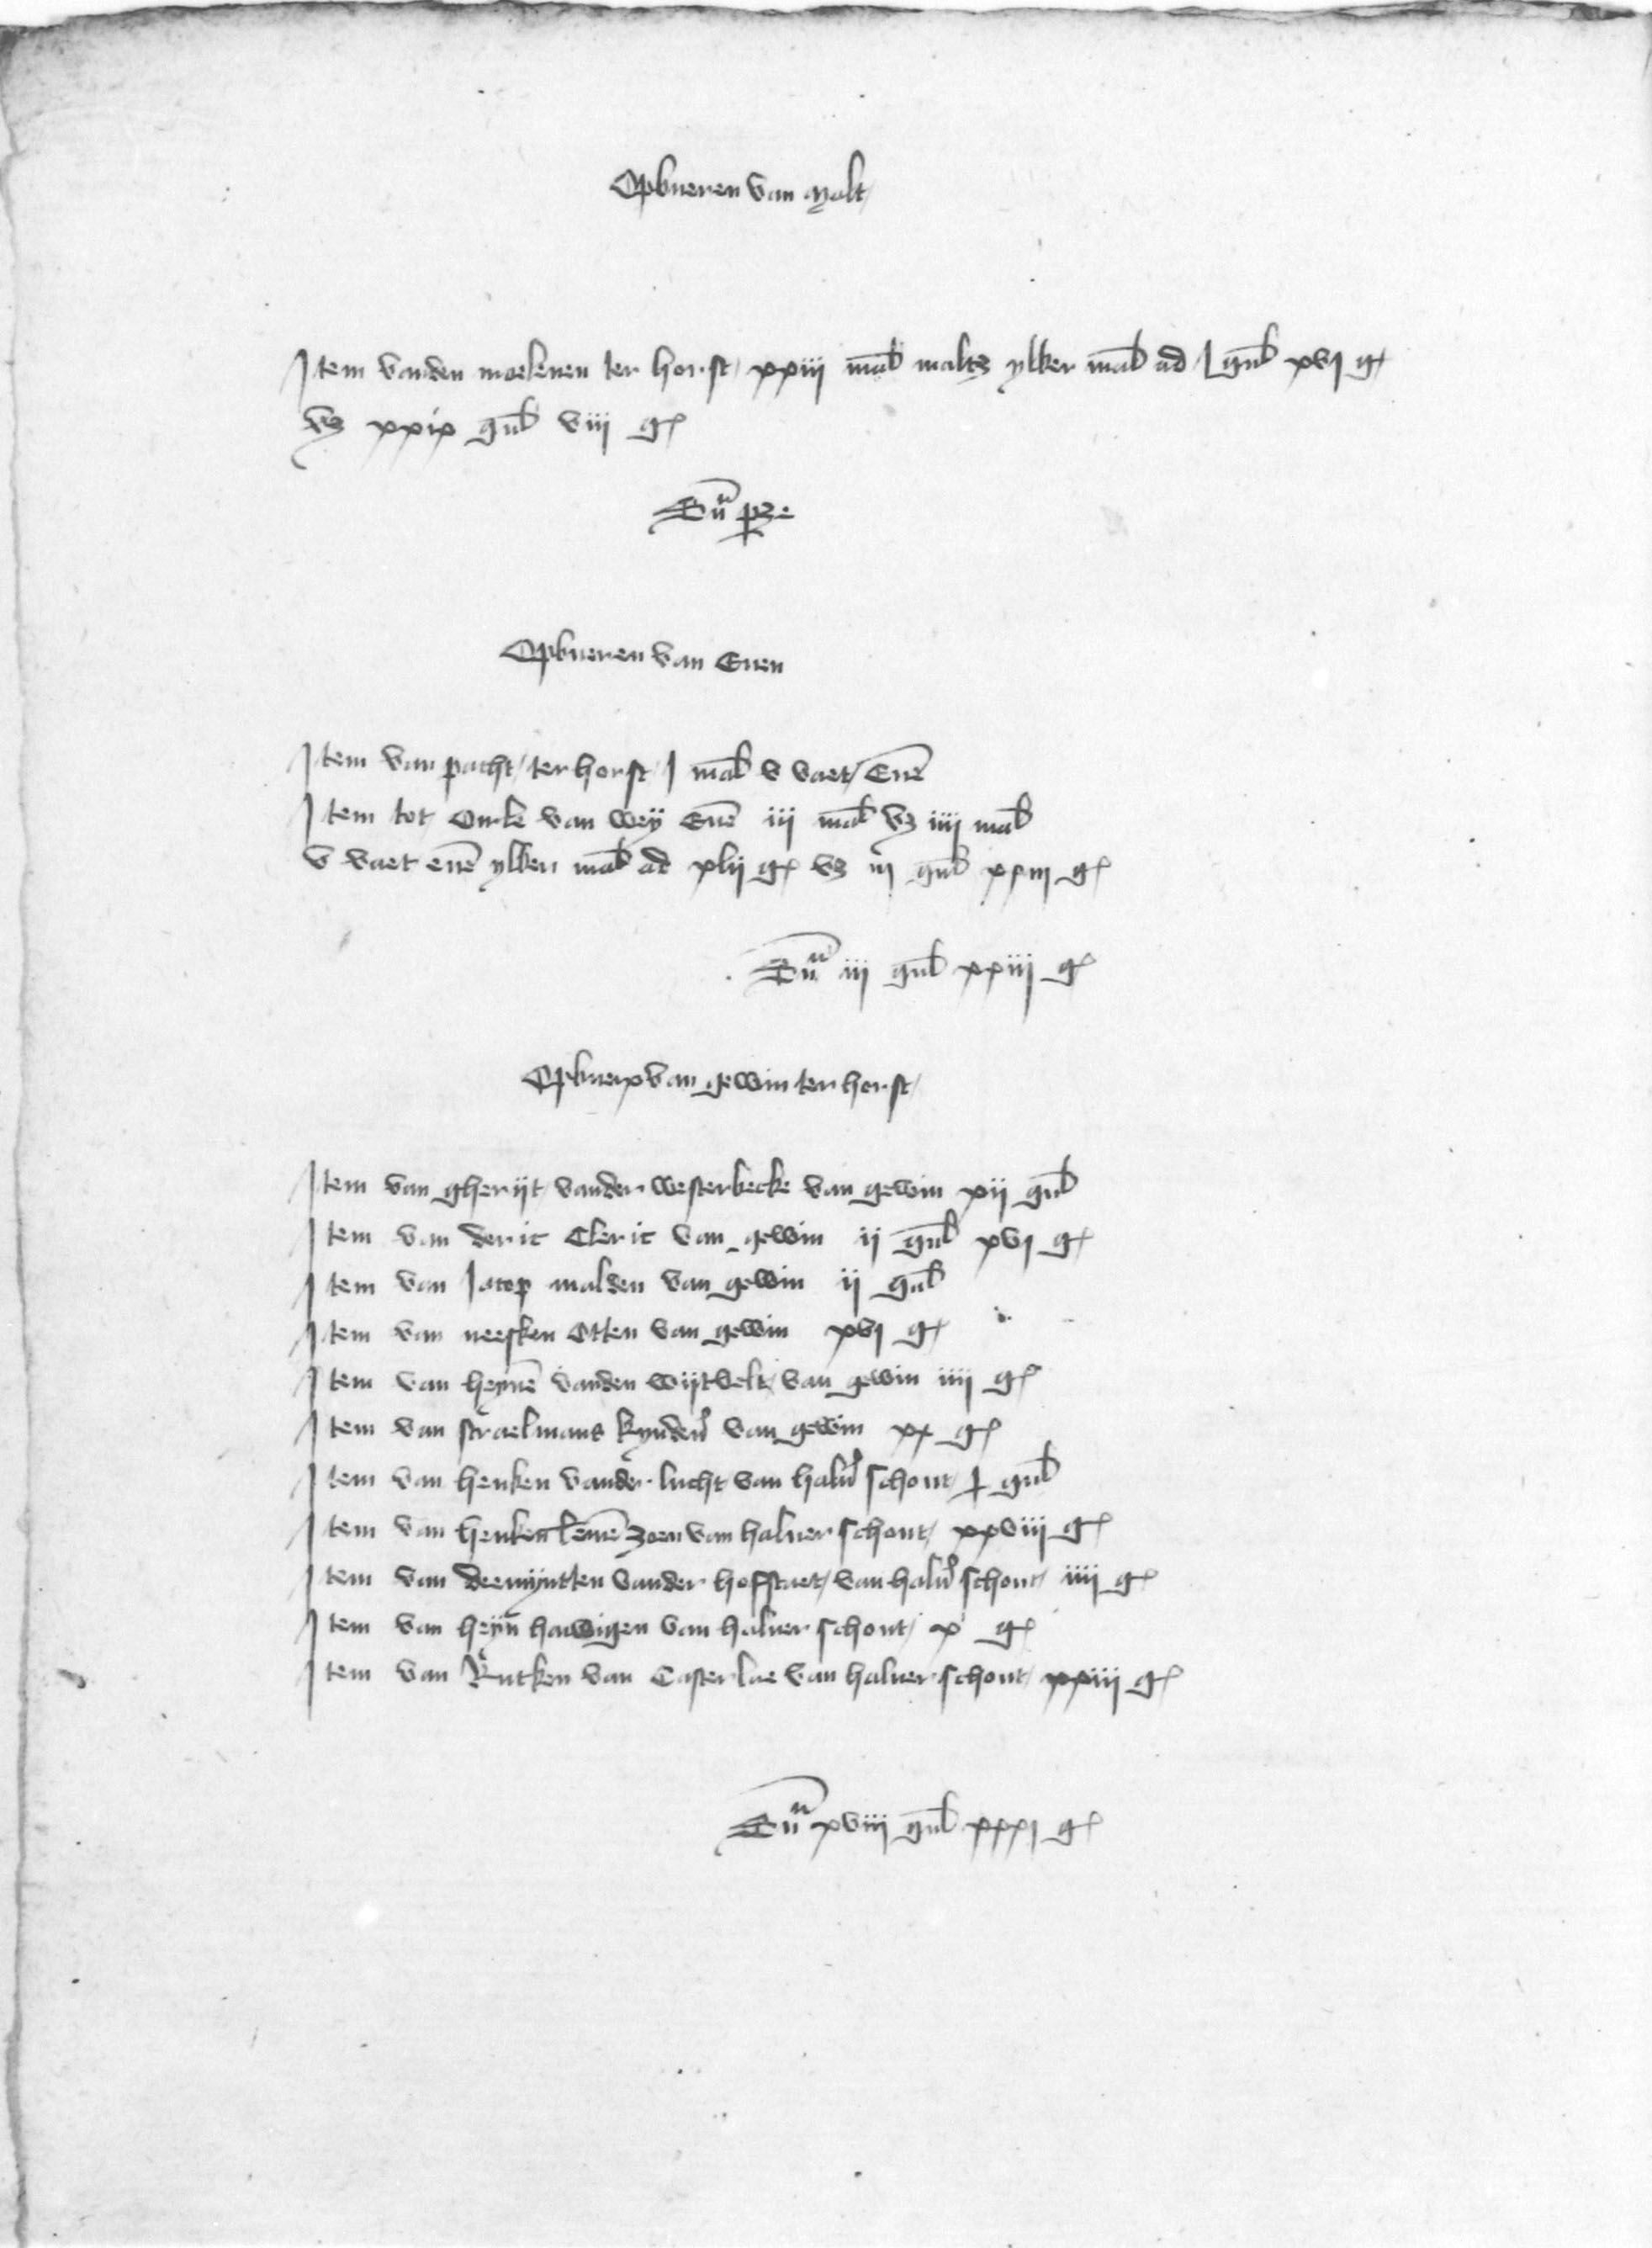 Opbueren van malt
Item vanden moelenen ter horst xxiij mald malts ylker mald ad I guld xvj gr
vz xxix guld viij gr
Suma p ze
Opbueren van Euen
Item van pacht ter horst I mald v vaet Euē
Item tot Oirle van wey Euē iij mald vz iiij mald
v vaet euē ylker mald ad xlij gr vz iij guld xxiij gr
Suma iij guld xxiij gr
Opbueren van gewin ter horst
Item van gheriit vander westerbecke van gewin xij guld
Item van deric Cleric van gewin ij guld xvj gr
Item van Jacop malden van gewin ij guld
Item van neesken Otten van gewin xvj gr
Item van heynē vanden wijtvelt van gewin iiij gr
Item van straelmans kynder van gewin xx gr
Item van henken vander lucht van haluer schout I guld
Item van henken lenē zoen van haluer schout xxviij gr
Item van deemynten vander hofstaet van haluer schout iiij gr
Item van heyn hawigen van haluer schout x gr
Item van Rutken van Casterlae van haluer schout xxiij gr
Suma xviij guld xxxj gr